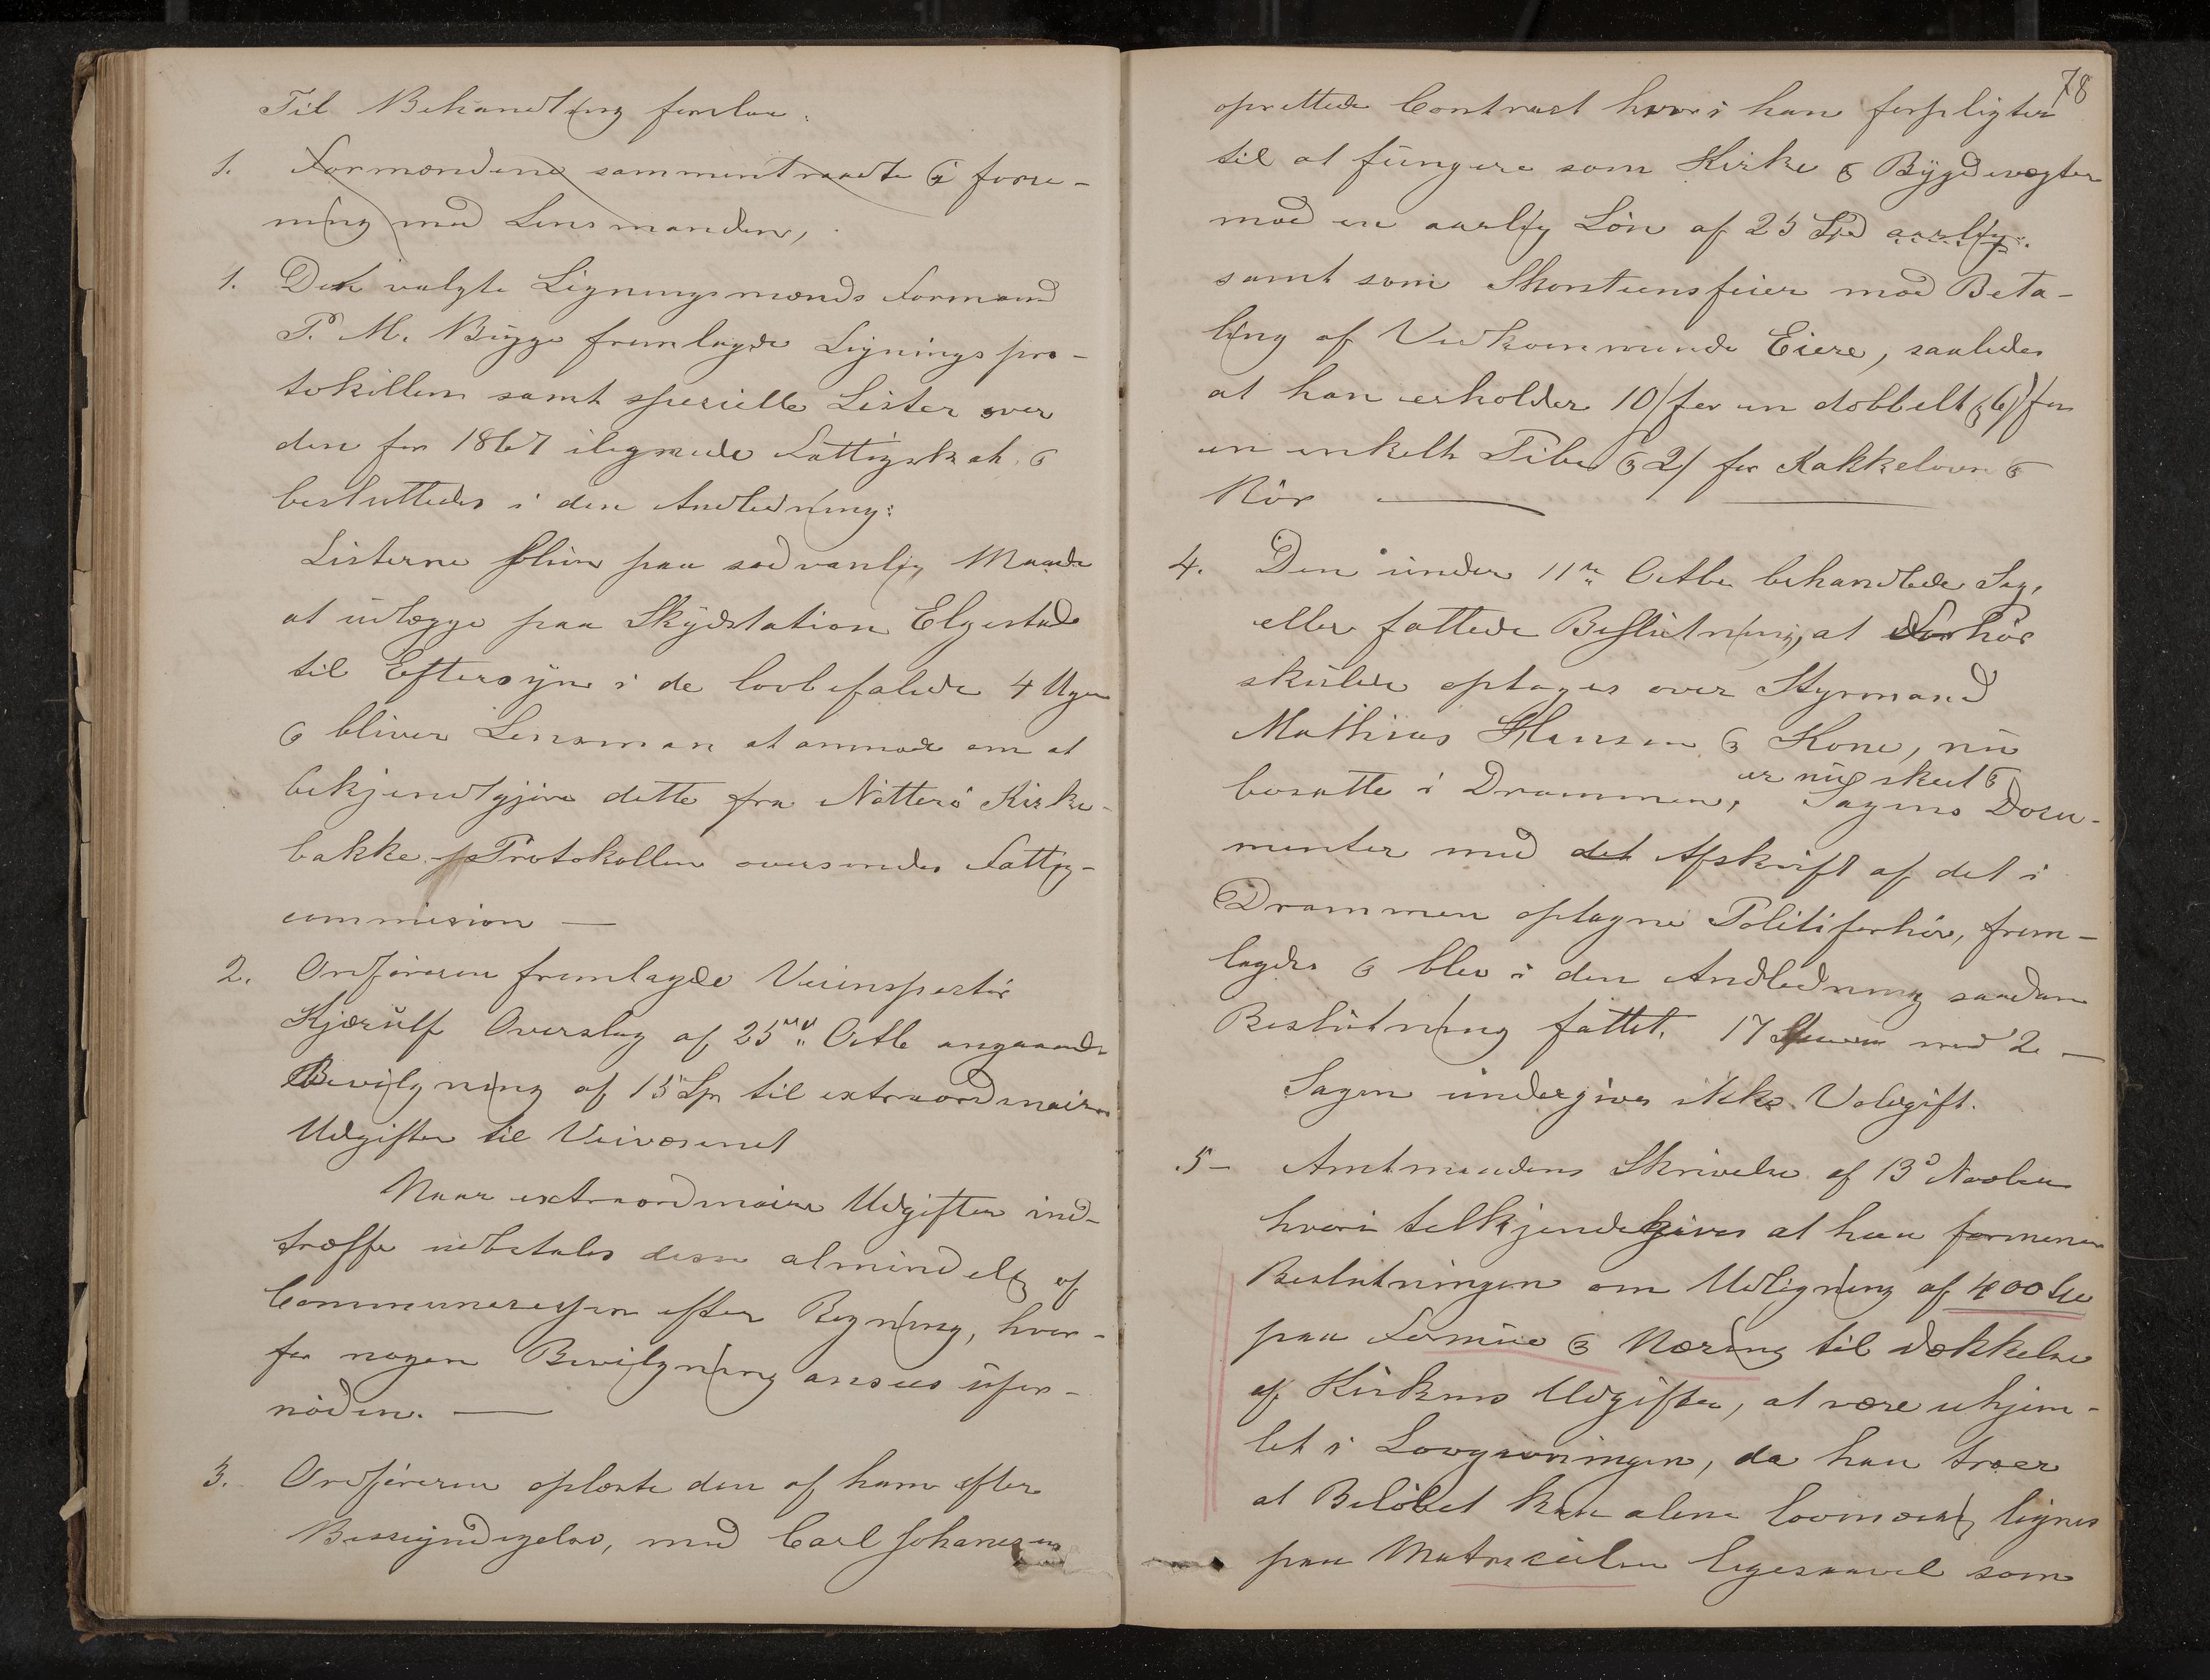 Til Behandling forelaa:
1. Formændene sammentraadte i fore-
ning med Lensmanden,
1. Den valgte Ligningsmænds Formand
P. M. Bugge fremlagde Lignings pro-
tokillen samt specielle Lister over
den for 1867 ilignede Fattigskat, &
besluttedes i den Andledning:
Listerne bliver paa sædvanlig Maade
at udlægge paa Skydstation Elgestad
til Eftersyn i de lovbefalede 4 Uger
& bliver Lensman at anmode om at
bekjendtgjøre dette fra Nøtterø Kirke-
bakke. Protokollen oversendes Fattig-
commision —
2. Ordføreren fremlagde Veiinspectør
Kjærulf Overslag af 25de Octb angaaende
Bevilgning af 15 Sp til extraordinaire
Udgifter til Veivæsenet
Naar extraordinaire Udgifter ind-
træffe udbetales disse almindelig af
Communecassen efter Regning, hvor-
for nogen Bevilgning ansees ufor-
nøden. —
3. Ordføreren oplæste den af ham efter
Bemyndigelse, med Carl Johanesen
78
oprettede Contract hvori han forpligter
til at fungere som Kirke & Bygdevægter
mod en aarlig Løn af 25 Spd aarlig.
samt som Skorsteensfeier mod Beta-
ling af Vedkommende Eiere, saaledes
at han erholder 10/ for en dobbelt & 6/ for
en enkelt Pibe & 2/ for Kakkelovn &
Rør —
4. Den under 11te Octbr behandlede Sag,
eller fattede Beslutning, at Forhør
skulde optages over Styrmand
Mathias Hansen & Kone, nu
bosatte i Drammen,
er nu skeet &
Sagens Docu-
menter med det Afskrift af det i
Drammen optagne Politiforhør, frem-
lagdes & blev i den Andledning saadan
Beslutning fattet, 17 Stemmer mod 2 —
Sagen undergives ikke Voldgift.
5 - Amtmandens Skrivelse af 13d Novber
hvori tilkjendegives at han formener
Beslutningen om Udligning af 400 Spd
paa Formue & Næring til Dækkelse
af Kirkens Udgifter, at være uhjem-
let i Lovgivningen, da han troer
at Beløbet kun alene lovmæssig lignes
paa Matriculen ligesaavel som